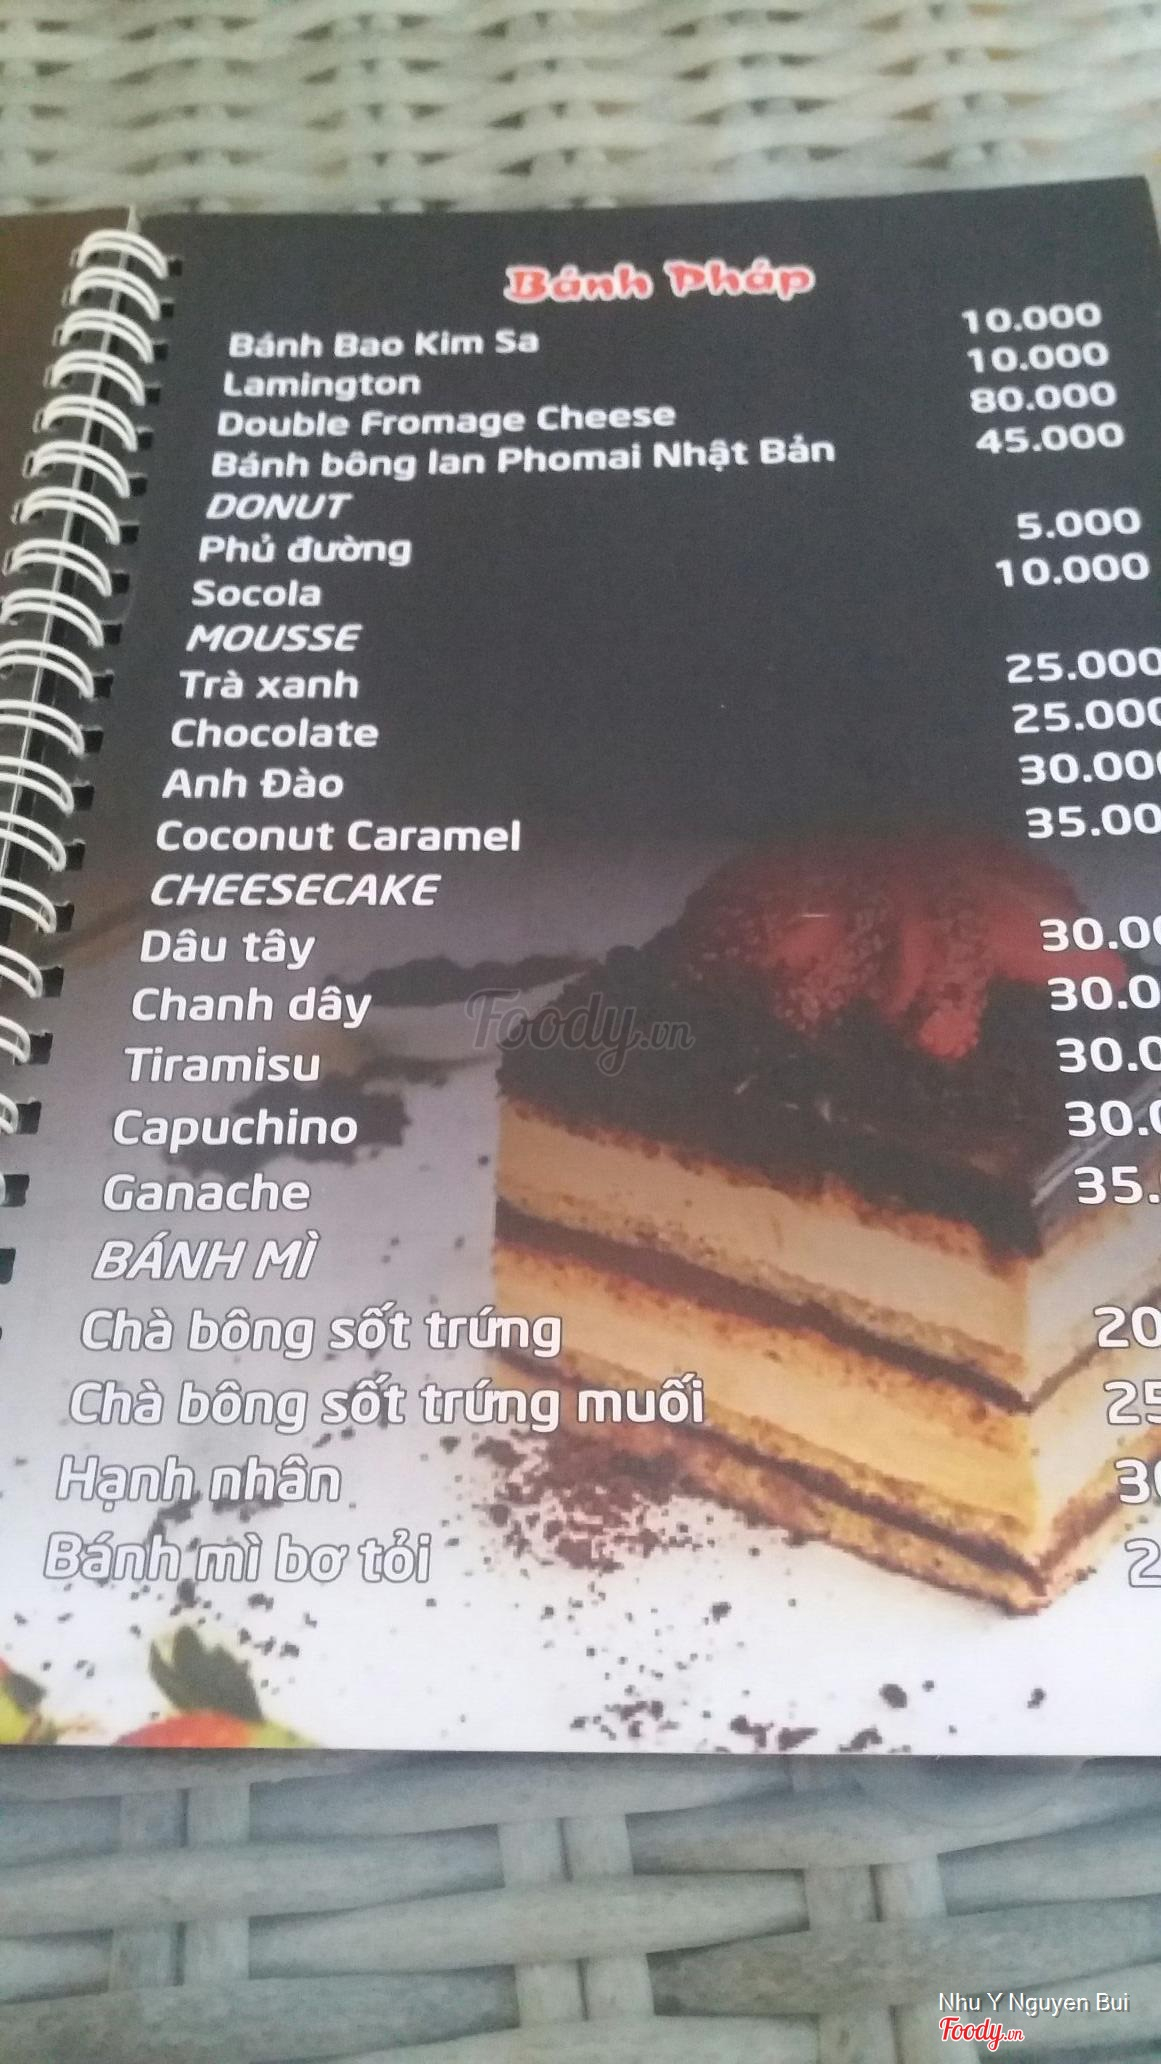 Bánh Pháp
Bánh Bao Kim Sa 10.000
Lamington 10.000
Double Fromage Cheese 80.000
Bánh bông lan Phomai Nhật Bản 45.000
DONUT
Phủ đường 5.000
Socola 10.000
MOUSSE
Trà xanh 25.000
Chocolate 25.000
Anh Đào 30.000
Coconut Caramel 35.00
CHEESECAKE
Dâu tây 30.00
Chanh dây 30.0
Tiramisu 30.0
Capuchino 30.0
Ganache 35.
BÁNH MÌ
Chà bông sốt trứng 20
Chà bông sốt trứng muối 25
Hạnh nhân 30
Bánh mì bơ tỏi 2
Foody.vn
Nhu Y Nguyen Bui
Foody.vn